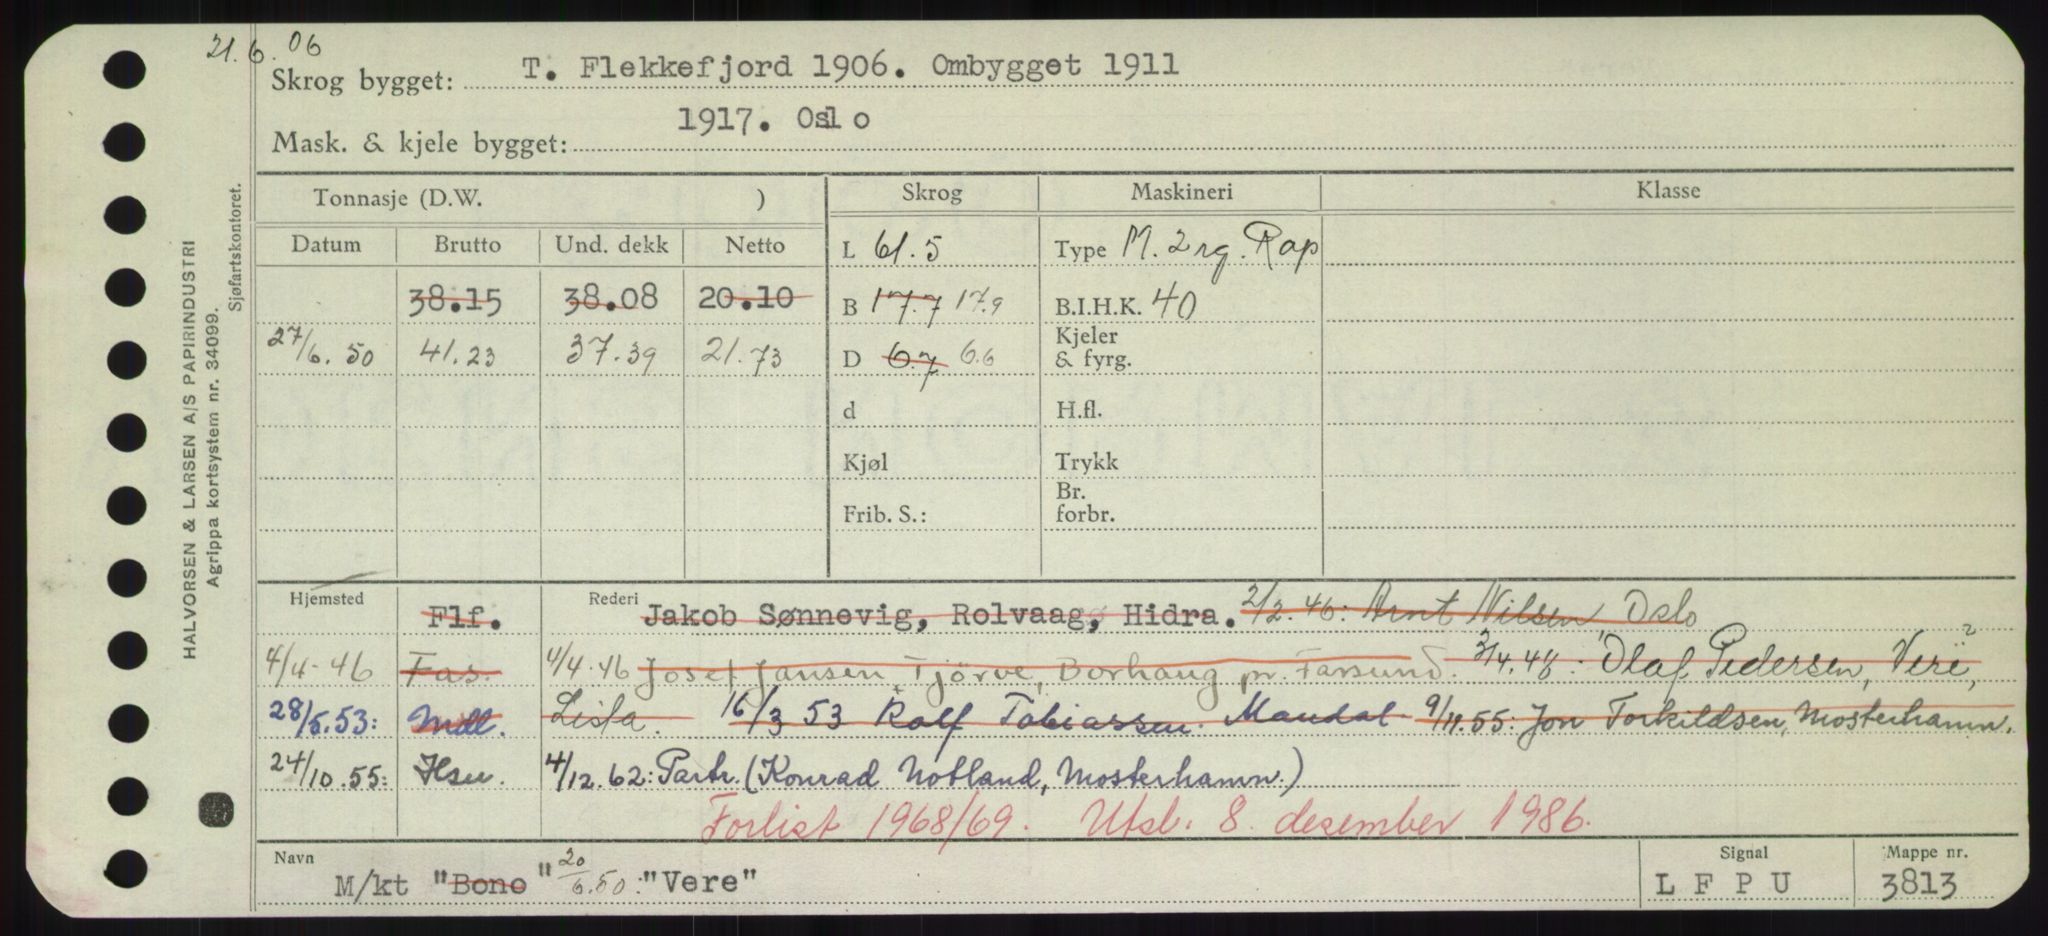 21.6.06
Skrog bygget: T. Flekkefjord 1906. Ombygget 1911
Mask. & kjele bygget: 1917. Oslo
HALVORSEN & LARSEN A/S PAPIRINDUSTRI
Agrippa kortsystem nr. 34099.
Sjøfartskontoret.
Tonnasje (D.W. ) Skrog Maskineri Klasse
Datum Brutto Und. dekk Netto
L 61.5 Type M. 2 rg. Rap
38.15 38.08 20.10 B 17.7 17.9 B.I.H.K. 40
27/6.50 41.23 37.39 21.73 D 6.7 6.6 Kjeler & fyrg.
d H.fl.
Kjøl Trykk
Frib. S.: Br. forbr.
Hjemsted Flf. Rederi Jakob Sønnevig, Rolvaag, Hidra. 2/2.46: Arnt Nilsen Oslo
4/4-46 Fas. 4/4.46 Josef Jansen, Tjörve, Borhaug pr. Farsund. 3/4.48: Olaf Pedersen, Vere,
28/5.53: Mdl. Lista. 16/3 53 Rolf Tobiassen. Mandal 9/11.55: Jon Torkildsen, Mosterhamn.
24/10.55: Hsu. 4/12.62: Partr. (Konrad Notland, Mosterhamn.)
Forlist 1968/69. Utsl. 8. desember 1986.
Navn Signal Mappe nr.
M/kt "Bono" 20/6.50: "Vere" L F P U 3813